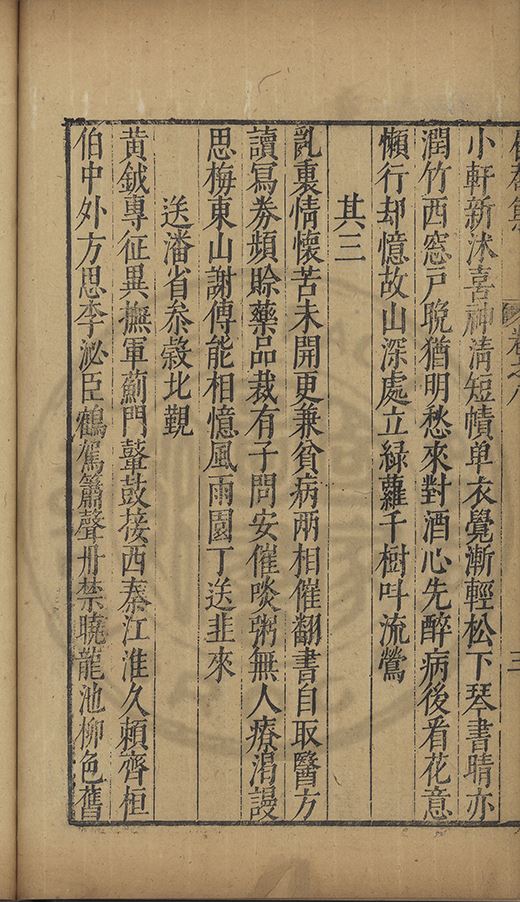 卷之八
三
小軒新沐喜神清短幘单衣覺漸輕松下琴書晴亦
潤竹西窓戸晩猶明愁來對酒心先醉病後看花意
懶行却憶故山深處立綠蘿千樹叶流鶯
其三
乱裏情懷苦未開更兼貧病兩相催翻書自取醫方
讀寫券頻賒藥品裁有子問安催啖粥無人療渴謾
思梅東山謝傅能相憶風雨園丁送韭來
送潘省叅敍北覲
黄鉞專征異撫軍薊門鼙鼓接西秦江淮久頼齊桓
伯中外方思李泌臣鶴駕簫聲丹禁曉龍池柳色舊